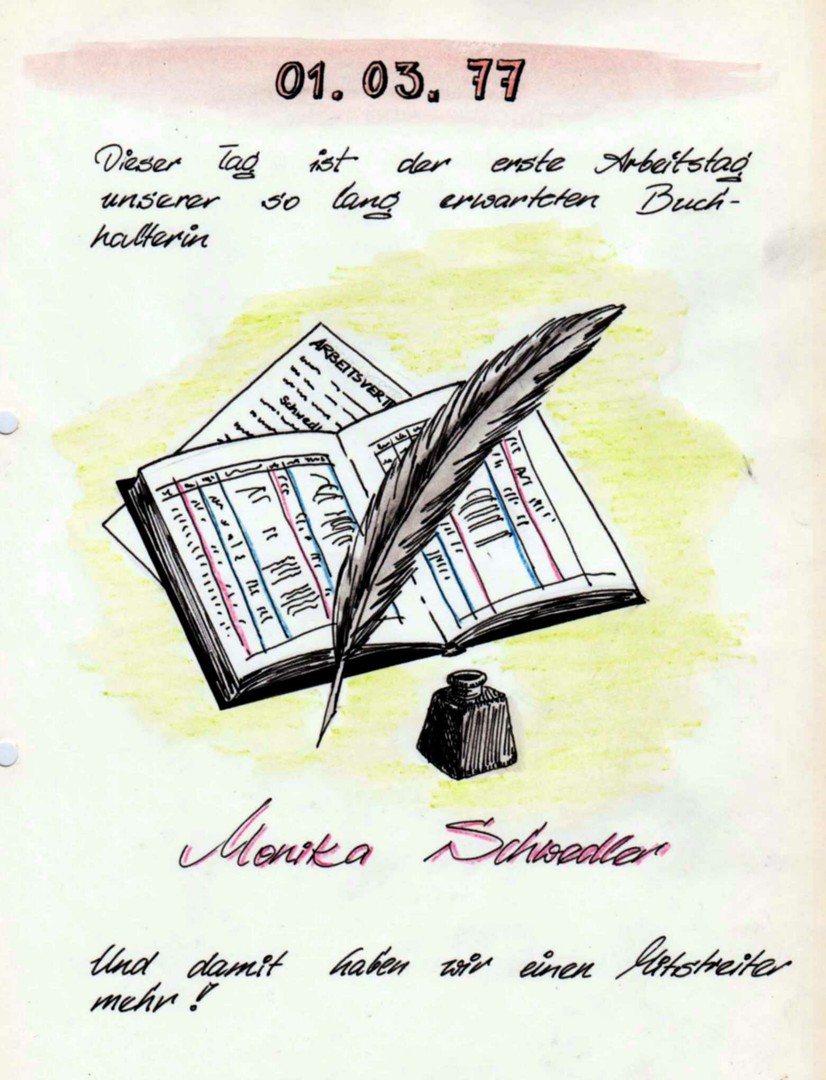 01. 03. 77
Dieser Tag ist der erste Arbeitstag
unserer so lang erwarteten Buch-
halterin
ARBEITSVERT
Schwedl
Monika Schwedler
Und damit haben wir einen Mitstreiter
mehr!